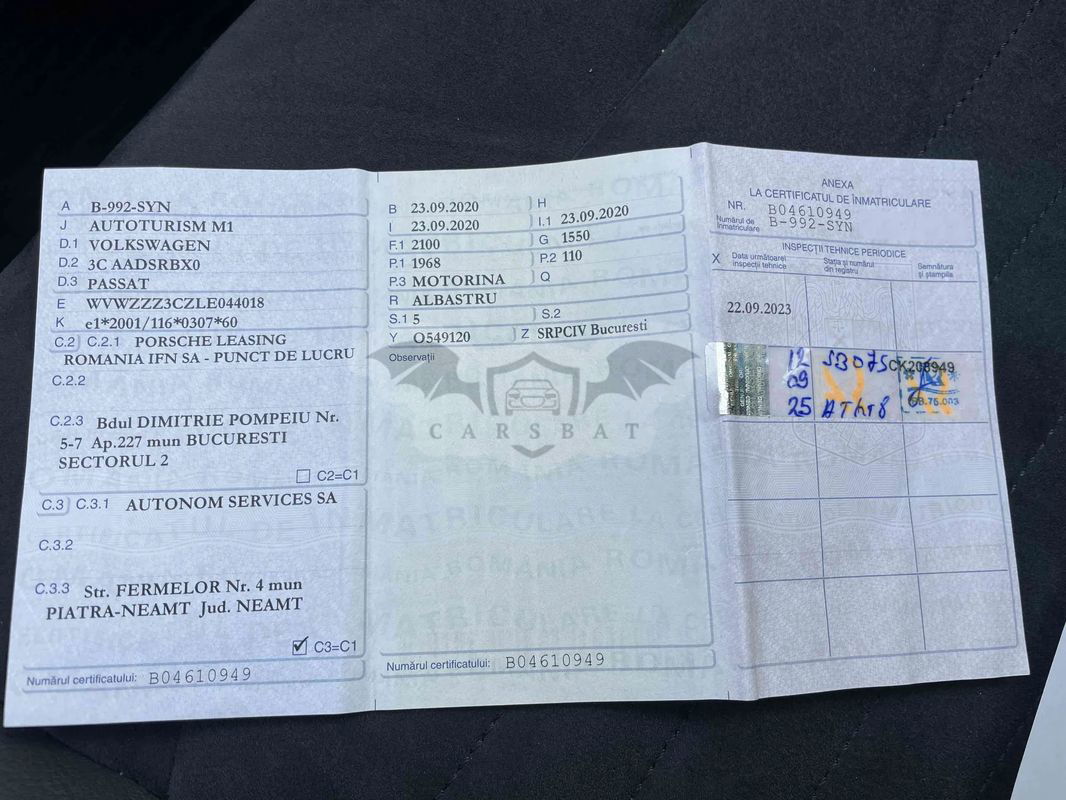 A B-992-SYN
J AUTOTURISM M1
D.1 VOLKSWAGEN
D.2 3C AADSRBX0
D.3 PASSAT
E WVWZZZ3CZLE044018
K e1*2001/116*0307*60
C.2 C.2.1 PORSCHE LEASING
ROMANIA IFN SA - PUNCT DE LUCRU
C.2.2
C.2.3 Bdul DIMITRIE POMPEIU Nr.
5-7 Ap.227 mun BUCURESTI
SECTORUL 2
C2=C1
C.3 C.3.1 AUTONOM SERVICES SA
C.3.2
C.3.3 Str. FERMELOR Nr. 4 mun
PIATRA-NEAMT Jud. NEAMT
C3=C1
Numărul certificatului: B04610949
B 23.09.2020 H
I 23.09.2020 I.1 23.09.2020
F.1 2100 G 1550
P.1 1968 P.2 110
P.3 MOTORINA Q
R ALBASTRU
S.1 5 S.2
Y O549120 Z SRPCIV Bucuresti
Observații
CARSBAT
Numărul certificatului: B04610949
ANEXA
LA CERTIFICATUL DE ÎNMATRICULARE
NR. B04610949
Numărul de înmatriculare B-992-SYN
INSPECȚII TEHNICE PERIODICE
X Data următoarei inspecții tehnice
Stația și numărul din registru
Semnătura și ștampila
22.09.2023
12 SB075 CK208949
09
25